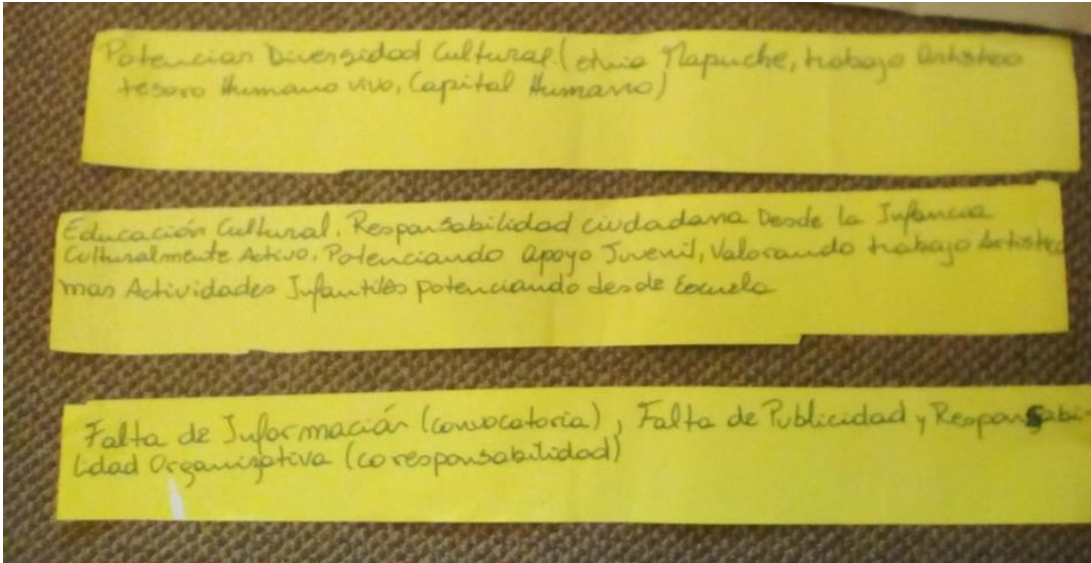 Potenciar Diversidad Cultural. (etnia Mapuche, trabajo Artistico
tesoro Humano vivo, Capital Humano)
Educación Cultural. Responsabilidad ciudadana Desde la Infancia
Culturalmente Activo. Potenciando apoyo Juvenil, Valorando trabajo Artistico
mas Actividades Infantiles potenciando desde Escuela
Falta de Información (convocatoria), Falta de Publicidad y Responsabi
lidad Organizativa (coresponsabilidad)